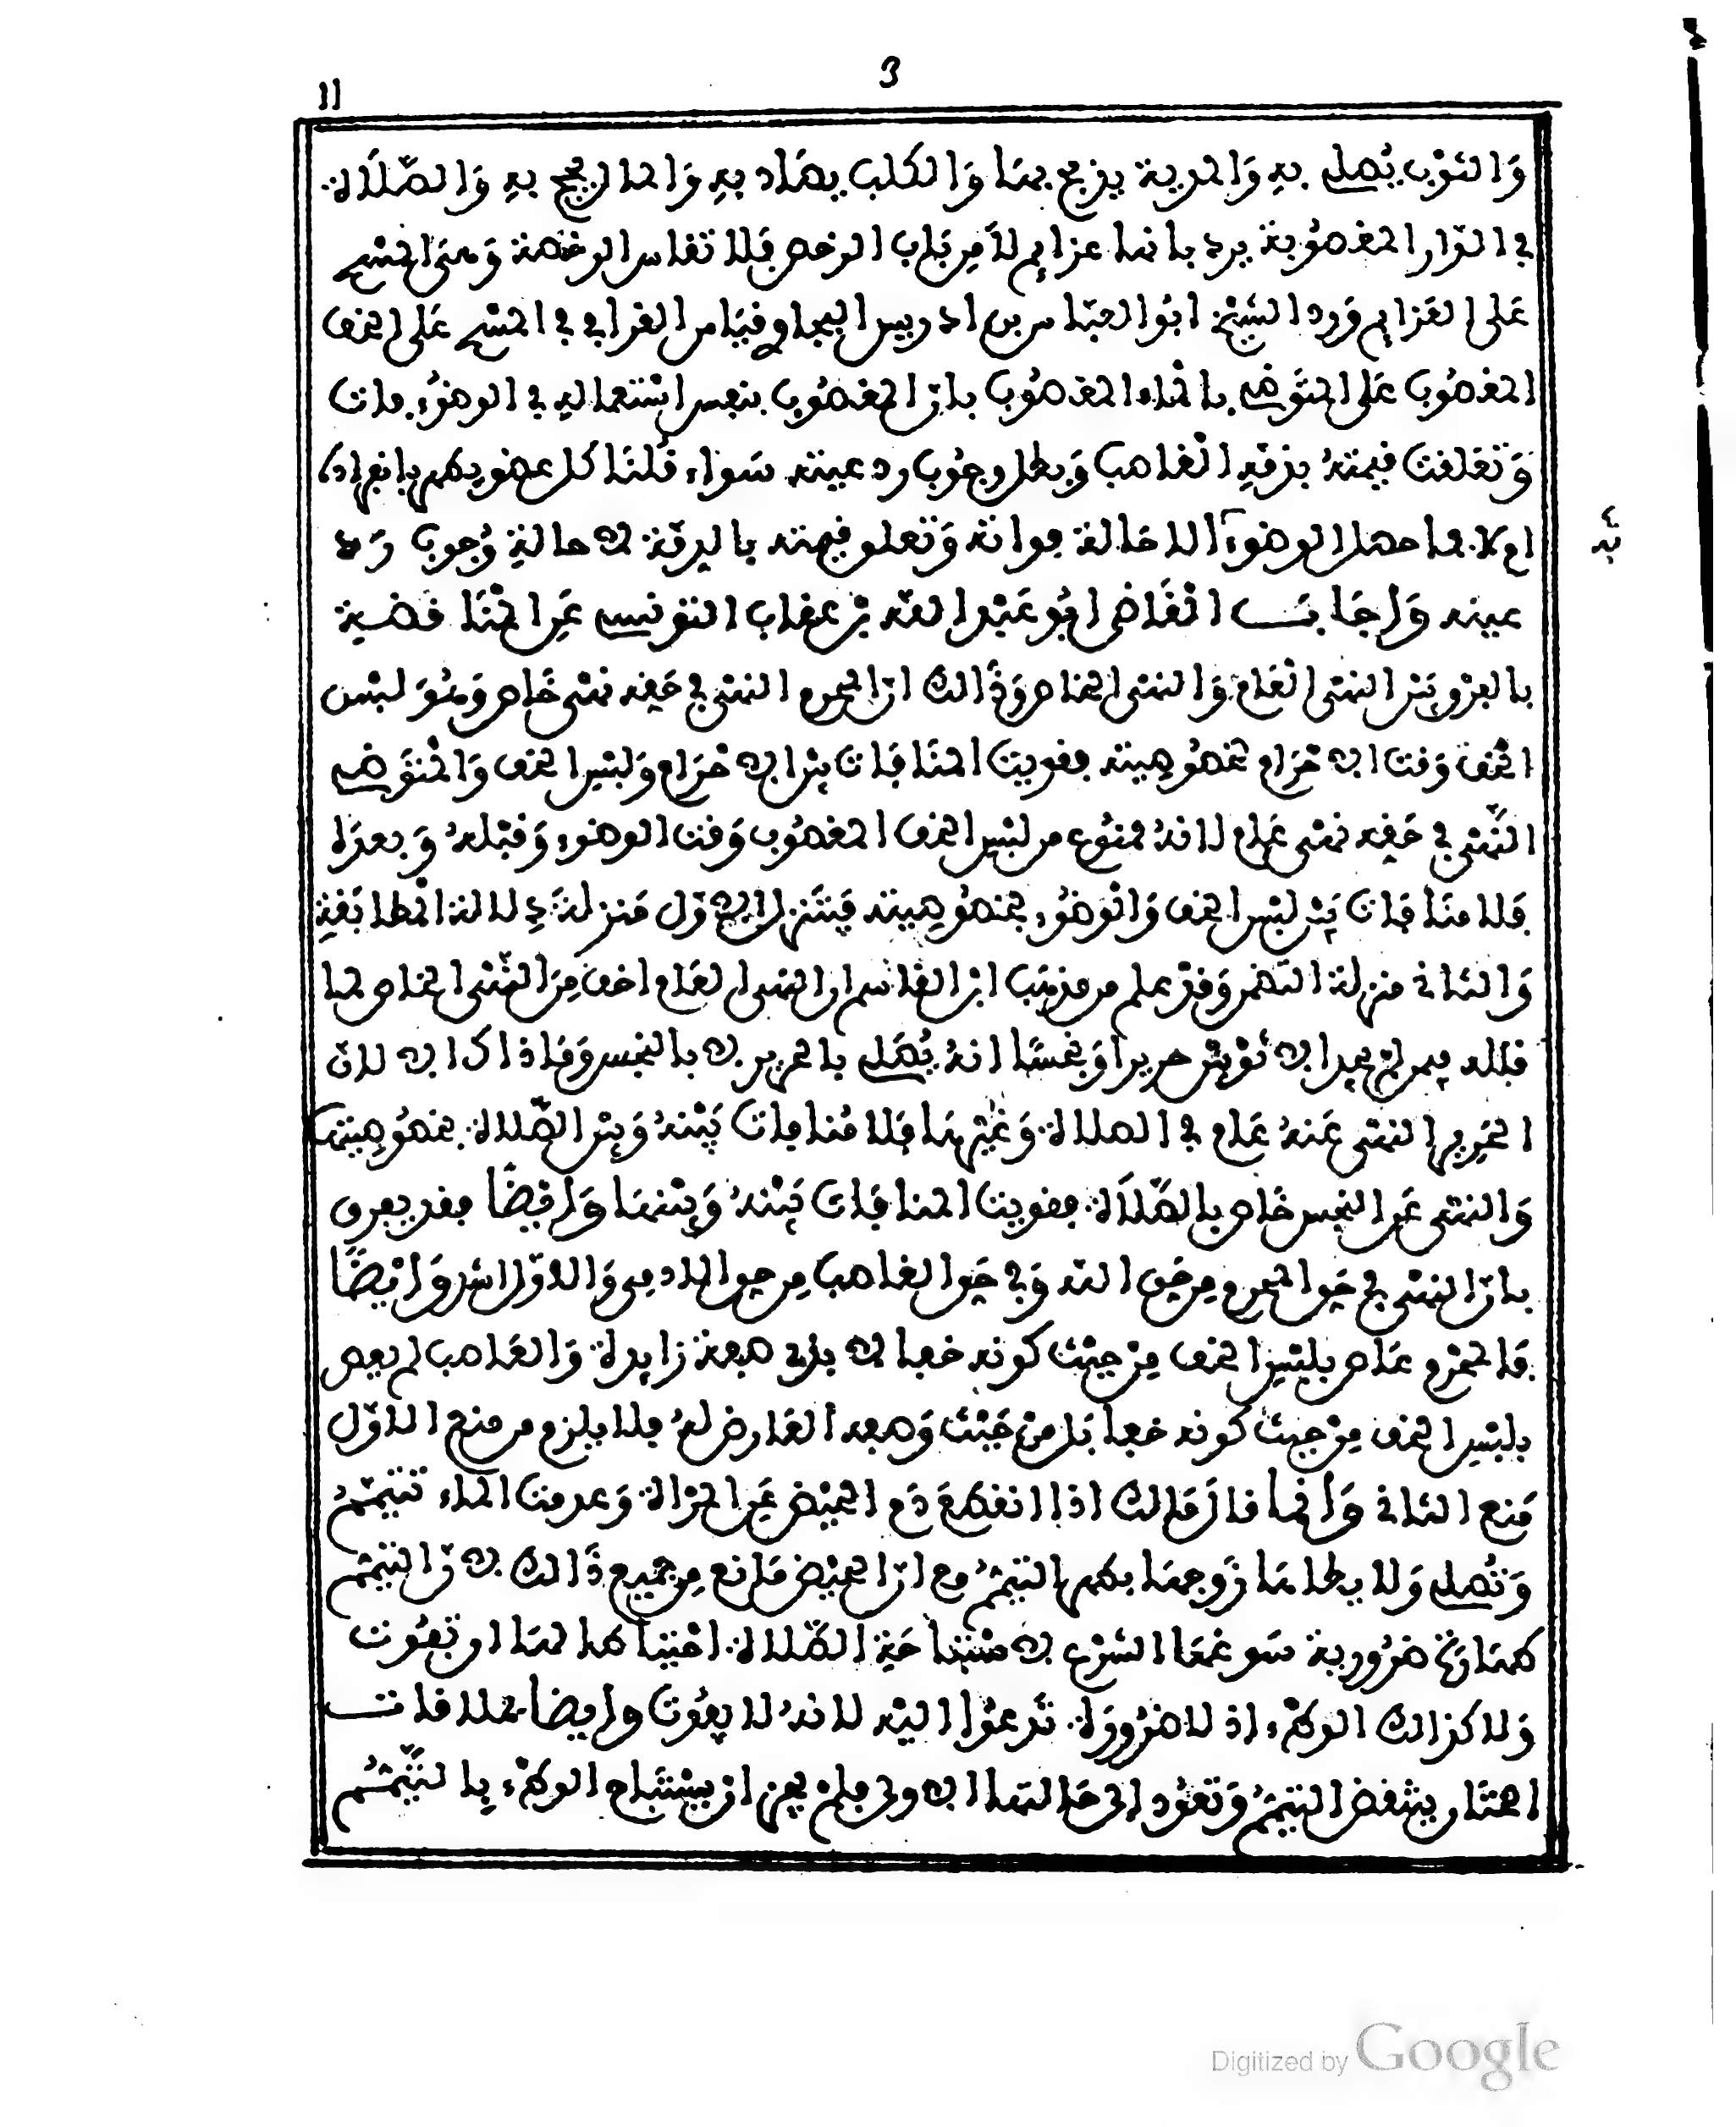 3
11
وَالثَوْب يُصلى به وَالمدية يذبح بهَا وَالكلب يصَاد به وَالمال يحج به وَالصّلَاة
في الدّار المغصُوبة يرد بانها عزايم لا مِن بَاب الرخص فَلا تقاس الرخصة وَهي المسْح
عَلى العَزايم وَرد الشيْخ ابُو العبّاس بن ادريس البجاوي قيَاس القرافي في المسْح عَلى الخف
المغصُوب عَلى المتوَضي بالمَاء المغصُوب بانّ المغصُوب بنفس اسْتعماله في الوضوُء فات
وَتعلقت قيمتهُ بذمّة الْغاصب وَبطل وجُوب رد عينه سَواء قُلنَا كل عضو يطهر بانفراده
ام لا فما حصل الوضوء الا حَالة فواته وَتعلق قيمته بالذمّة لا حالة وُجوب رَد
عينه وَاجَابَ الْقَاضي ابُو عَبْد اللّه بْن عقاب التونسي عَن المْنَا قضية
بالفرْق بَيْن النهْي الْعَام وَالنهْي الخاص وَذَالك انّ المحرم النهْي في حَقه نهْي خَاص وَهُوَ لبْس
الْخف وَقت الاحْرَام بخصُوصيته فقويت المنَافَات بيْن الاحْرَام وَلبْس الخف وَالمْتوَضي
النّهْي في حَقه نهْي عَام لانهُ ممنُوع من لبْس الخف المغصُوب وَقت الوضوء وَقبْلهُ وَبعدَه
فَلا منَافَات بَيْن لبْس الخف وَالْوضوُء بخصُوصيته فيتَنزل الاوّل مَنزلة دلالة الْمطابَقة
وَالثاني منزلة التضمن وَقدْ علم من مذهَب ابْن القاسم ان النهي العَام اخف مِنَ النّهْي الخاص لما
قاله فيمن لم يجد الا ثوْبيْن حريرا وَنجسًا انهُ يُصَلي بالحرير لا بالنجس وَمَا ذاك الا لانّ
الحَرير النهي عَنهُ عَام في الصلاة وَغيْرهَا فَلا مُنافات بيْنهُ وَبيْن الصّلاة بخصُوصيتها
وَالنهْي عَن النجس خَاص بالصّلَاة فقويت المنافَات بَيْنهُ وَبيْنهَا وَايْضًا فقد يفرق
بانّ النهْي في حَق المحرم مِن حَق اللّه وَفي حَق الغاصب مِن حق الادمي وَالاوّل اشد وَايْضًا
فَالمحْرم عَاص بلبْس الخف مِنْ حيْث كونه خفا لا باعتبار صفة زايدة وَالغَاصب لم يعص
بلبْس الخف مِنْ حيث كونه خفا بَل مِنْ حَيْث وَصفه العَارض لهُ فلا يلزم من منع الاوّل
مَنع الثاني وَانما قال مَالك اذا انقطعَ دَم الحيْض عَن المرْاة وَعدمت الماء تتيمّمُ
وَتُصلي وَلا يطاهَا زَوجهَا بطهر التيممُ مع انّ الحيْض مَانع مِن جميع ذَالك لانّ التيمّم
طهَارَة ضرُورية سَوغهَا الشرْع لاسْتباحَة الصّلاة احْتياطا لهَا ان تفُوت
وَلا كذالك الوطْء اذ لا ضرُورَة تَدعوُا اليْه لانهُ لا يفُوت وايضا بملاقات
الختان ينْتقض التيممُ وَتعُود الى حَالتها الاولى فلم يجز ان يسْتبَاح الوطْء بالتيّممُ